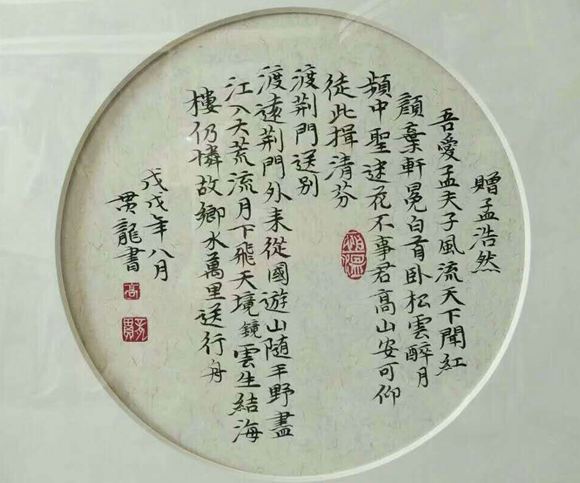 贈孟浩然
吾愛孟夫子風流天下聞紅
顔棄軒冕白首卧松雲醉月
頻中聖迷花不事君高山安可仰
徒此揖清芬
渡荆門送别
渡遠荆門外来從國遊山隨平野盡
江入大荒流月下飛天境鏡雲生結海
樓仍憐故鄉水萬里送行舟
戊戌年八月
贯龍書